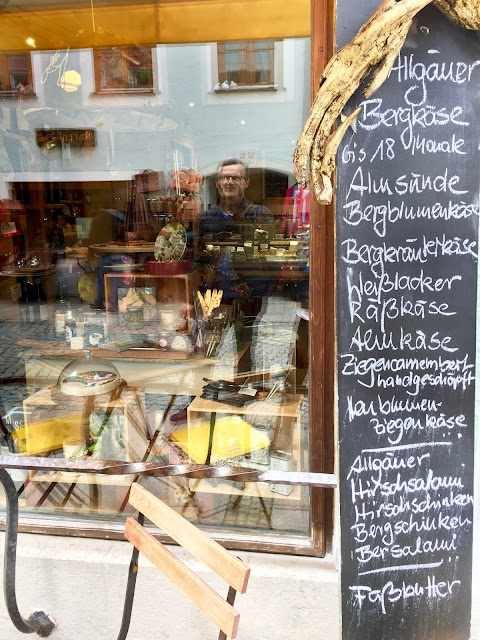 Allgäuer
Bergkäse
bis 18 Monate
Almsünde
Bergblumenkäse
Bergkräuterkäse
Weißlacker
Räßkäse
Almkäse
Ziegencamembert
handgeschöpft
Heublumen-
ziegenkäse
Allgäuer
Hirschsalami
Hirschschinken
Bergschinken
Bersalami
Faßbutter